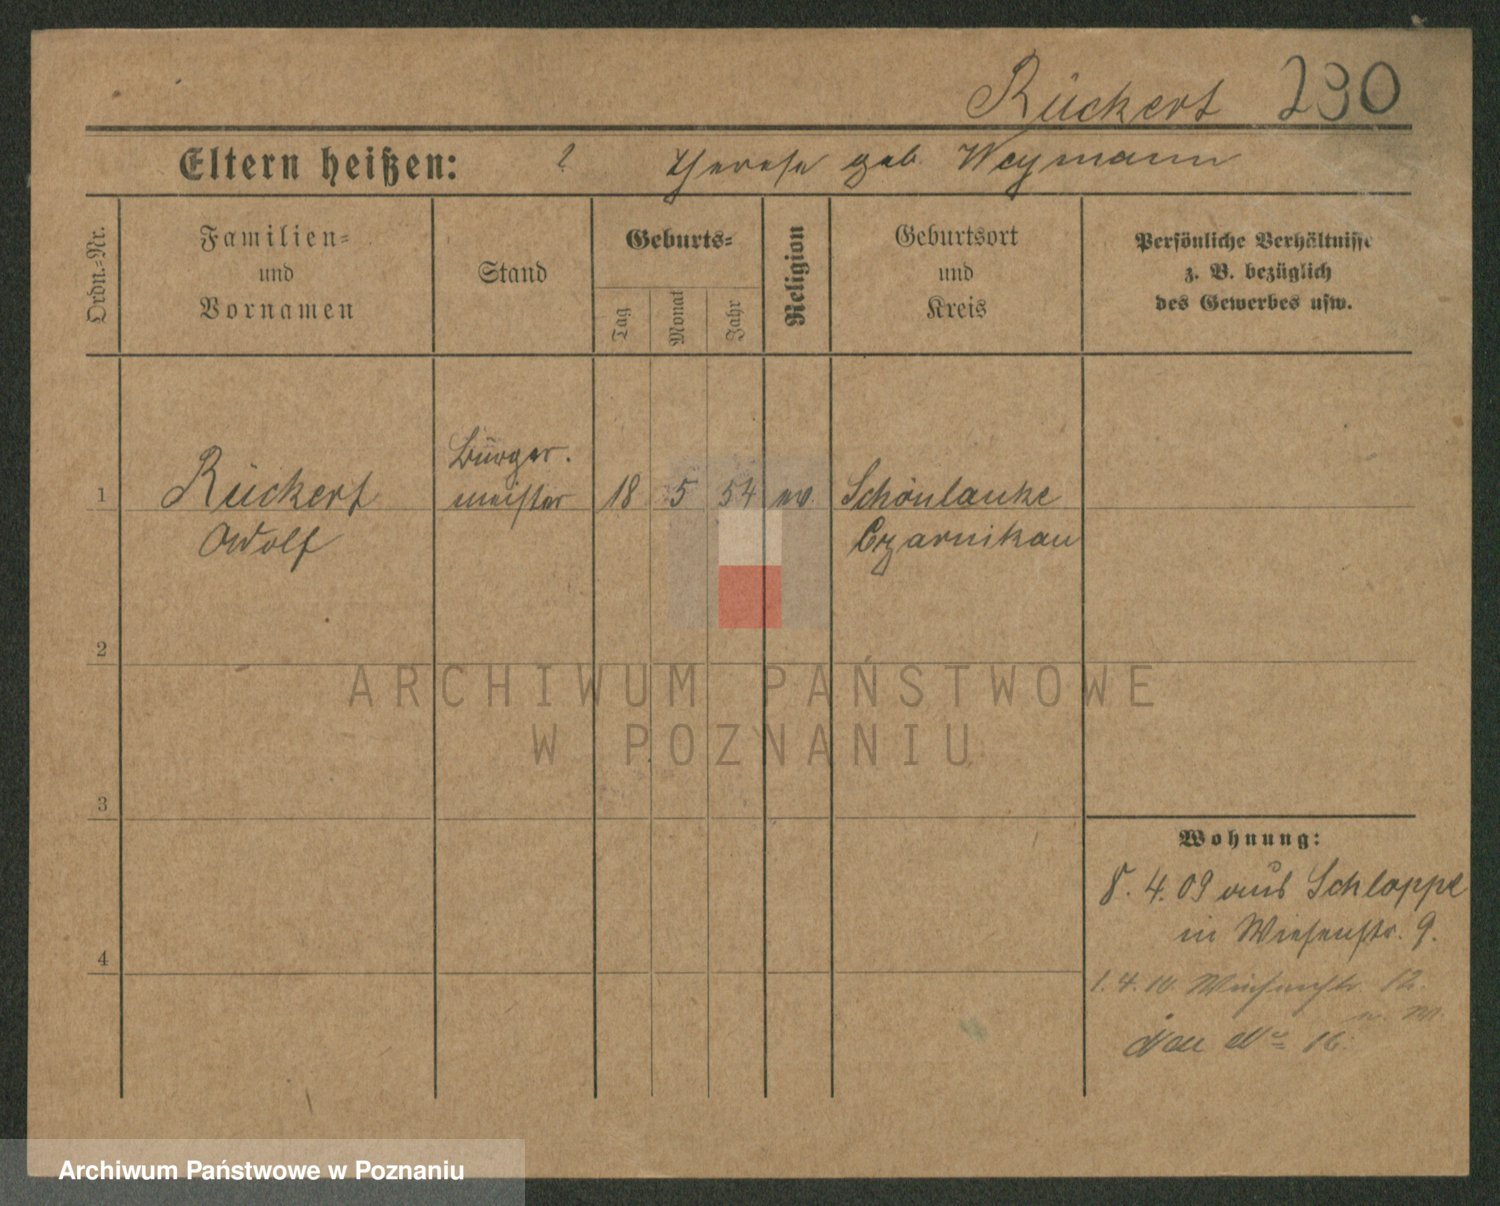 Rückert 230
Eltern heißen: ? Therese geb. Weymann
Ordn.-Nr.
Familien-
und
Vornamen
Stand
Geburts-
Tag
Monat
Jahr
Religion
Geburtsort
und
Kreis
Persönliche Verhältnisse
z. B. bezüglich
des Gewerbes usw.
Bürger-
1 Rückert meister 18 5 54 ev. Schönlanke
Adolf Czarnikau
2
ARCHIWUM PAŃSTWOWE
W POZNANIU
3
Wohnung:
8. 4. 09 aus Schloppe
in Wiesenstr. 9.
4
1. 4. 10. Wiesenstr. 12.
Neu No 16.
Archiwum Państwowe w Poznaniu